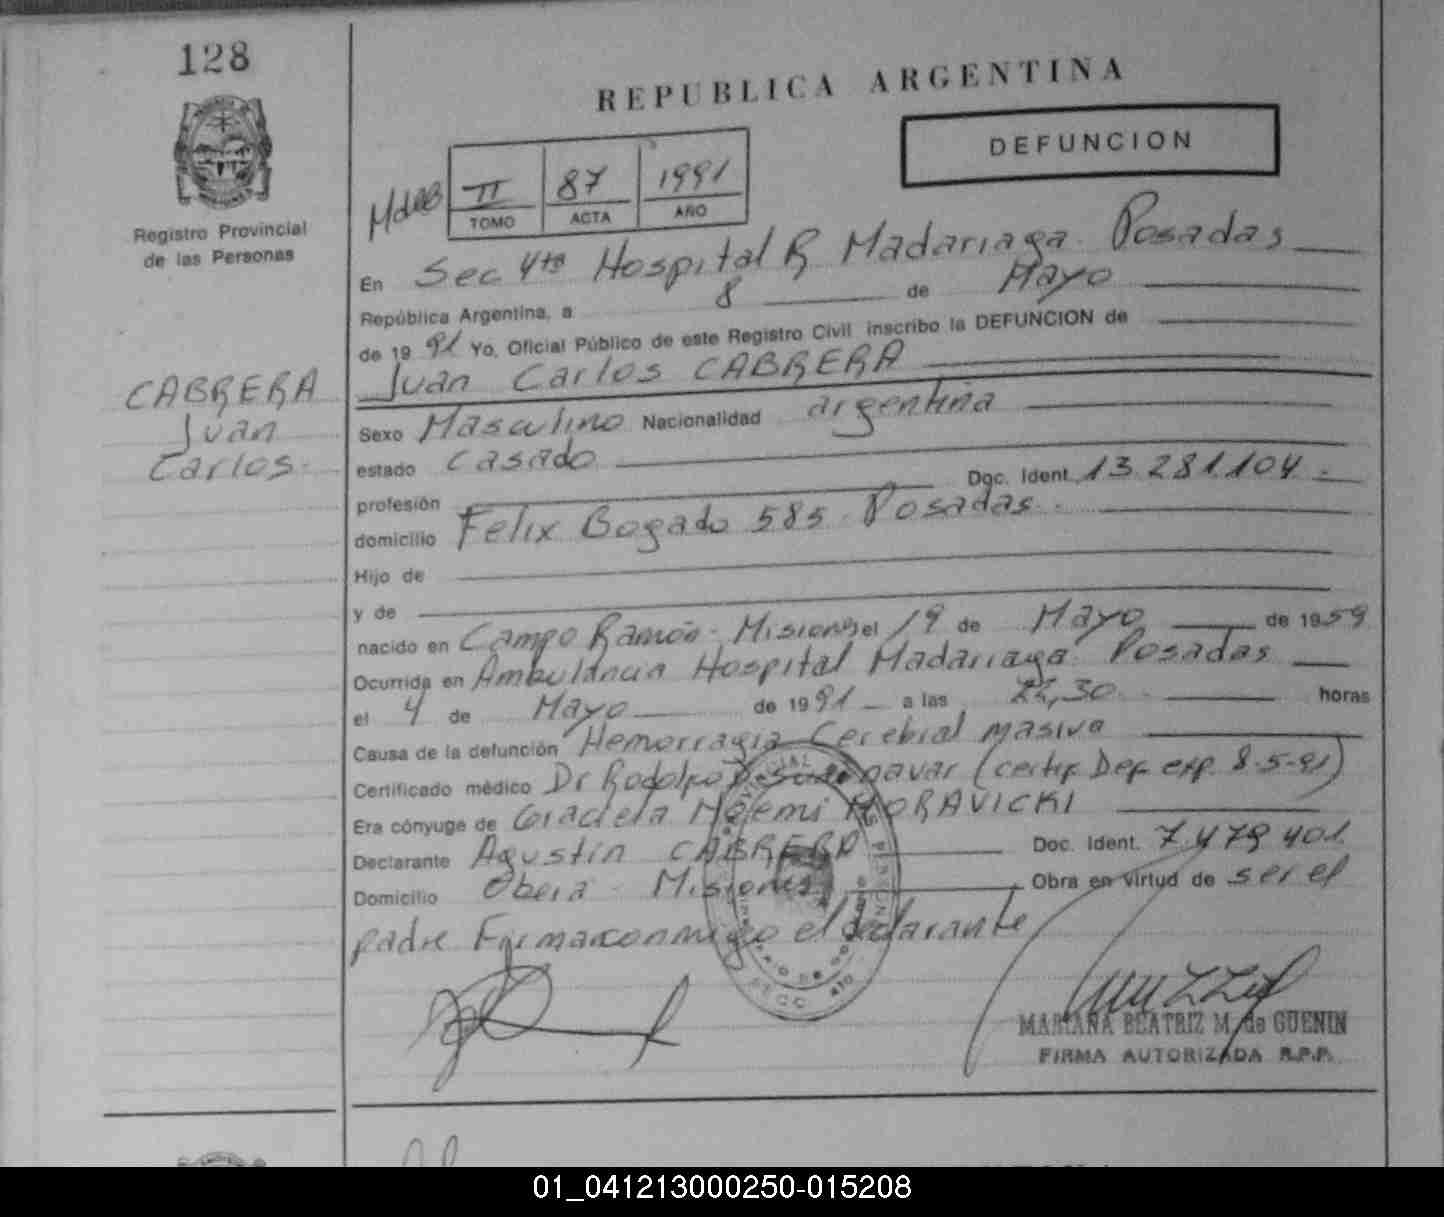 128
REPUBLICA ARGENTINA
DEFUNCION
II 87 1991
TOMO ACTA AÑO
Registro Provincial
de las Personas
CABRERA
Juan
Carlos.
En Sec 4ta Hospital R Madariaga. Posadas
República Argentina, a 8 de Mayo
de 1991 Yo, Oficial Público de este Registro Civil inscribo la DEFUNCION de
Juan Carlos CABRERA
Sexo Masculino Nacionalidad argentina
estado casado
profesión Doc. Ident. 13.281.104.
domicilio Felix Bogado 585. Posadas.
Hijo de
y de
nacido en Campo Ramón. Misiones el 19 de Mayo de 1959
Ocurrida en Ambulancia Hospital Madariaga. Posadas
el 4 de Mayo de 1991 a las 22,30 horas
Causa de la defunción Hemorragia Cerebral masiva
Certificado médico Dr Rodolfo (certif. Def. exp. 8-5-91)
Era cónyuge de Graciela Noemi MORAVICKI
Declarante Agustin CABRERA Doc. Ident. 7.479.401.
Domicilio Oberá - Misiones Obra en virtud de ser el
padre Firma conmigo el declarante
MARIANA BEATRIZ M. de GUENIN
FIRMA AUTORIZADA R.P.P.
01_041213000250-015208